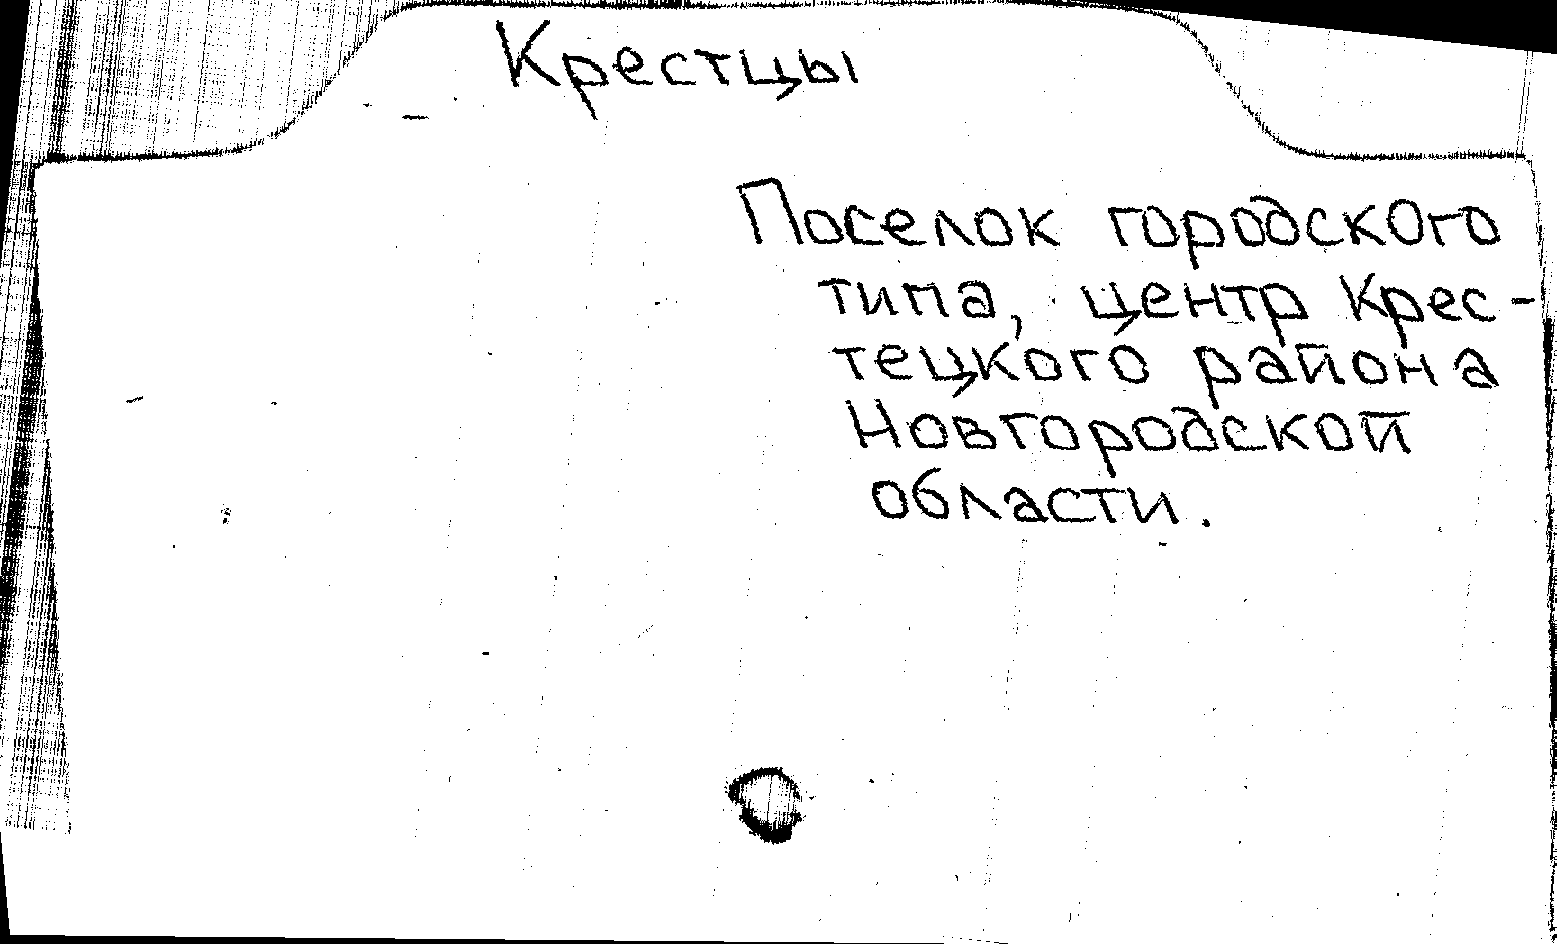 Крестцы
Поселок городского
типа, центр Крес-
тецкого района
Новгородской
области.